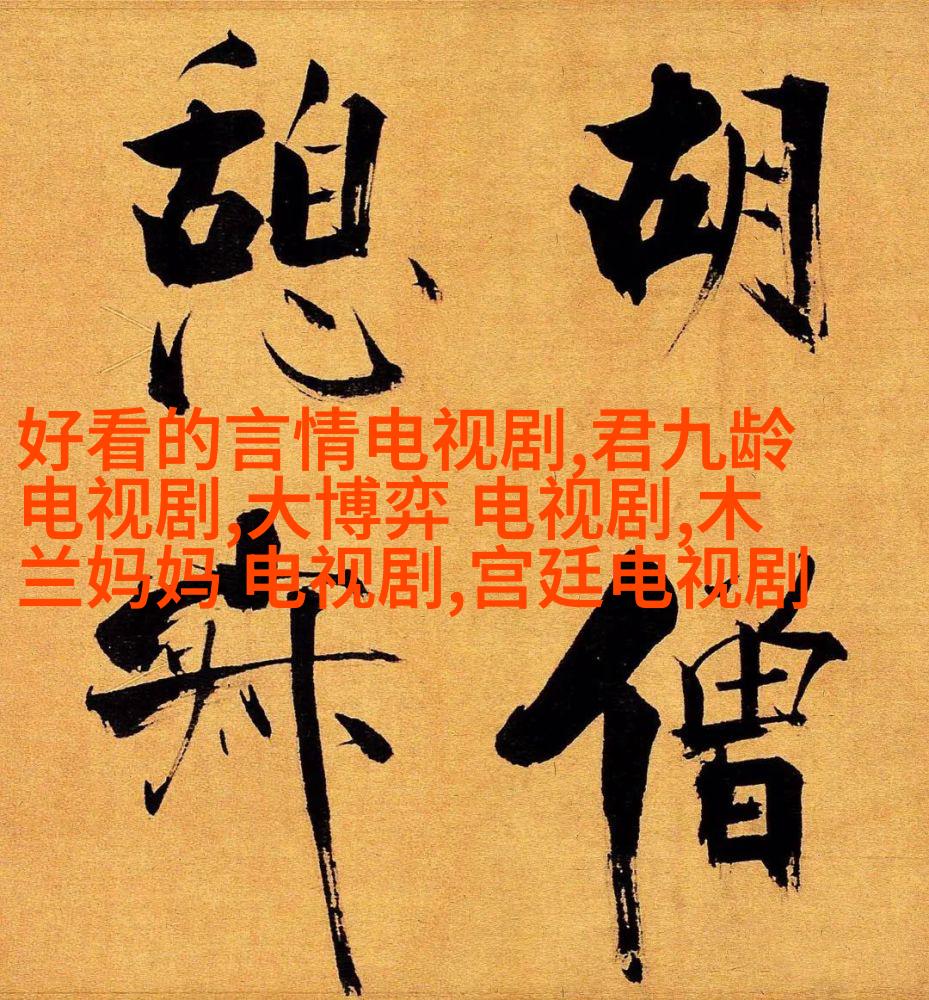 胡僧
憩
好看的言情电视剧,君九龄
电视剧,大博弈 电视剧,木
兰妈妈 电视剧,宫廷电视剧